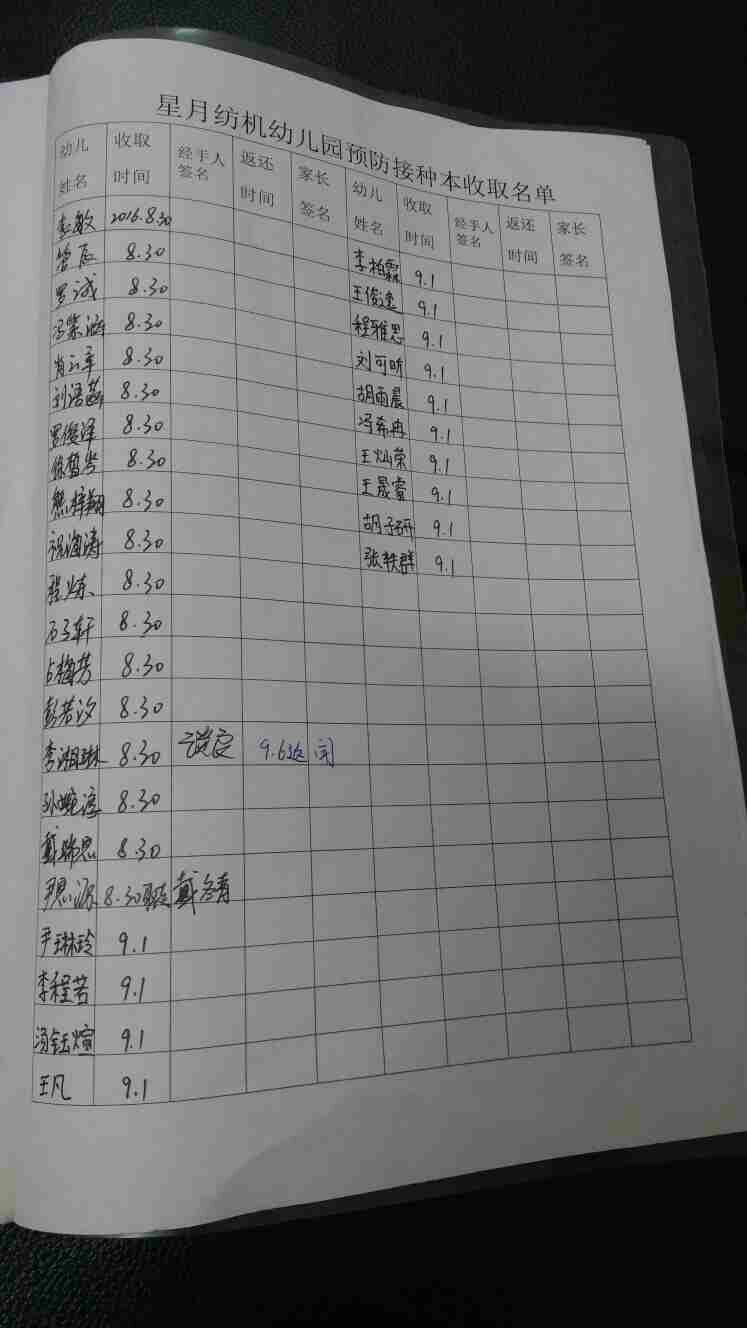 星月纺机幼儿园预防接种本收取名单
幼儿姓名 收取时间 经手人签名 返还时间 家长签名 幼儿姓名 收取时间 经手人签名 返还时间 家长签名
李敏 2016.8.30
管辰 8.30 李柏霖 9.1
罗诚 8.30 王俊逸 9.1
冯紫涵 8.30 程雅思 9.1
肖云军 8.30 刘可昕 9.1
刘语 8.30 胡雨晨 9.1
罗俊泽 8.30 冯希冉 9.1
徐哲 8.30 王灿荣 9.1
熊梓翔 8.30 王晟睿 9.1
祝海涛 8.30 胡子研 9.1
程炼 8.30 张轶群 9.1
石子轩 8.30
占梅芳 8.30
彭若汐 8.30
李湘琳 8.30 9.6返园
孙婉 8.30
戴瑞思 8.30
思源 8.30 戴冬青
尹琳玲 9.1
李程若 9.1
汤钰煊 9.1
王凡 9.1